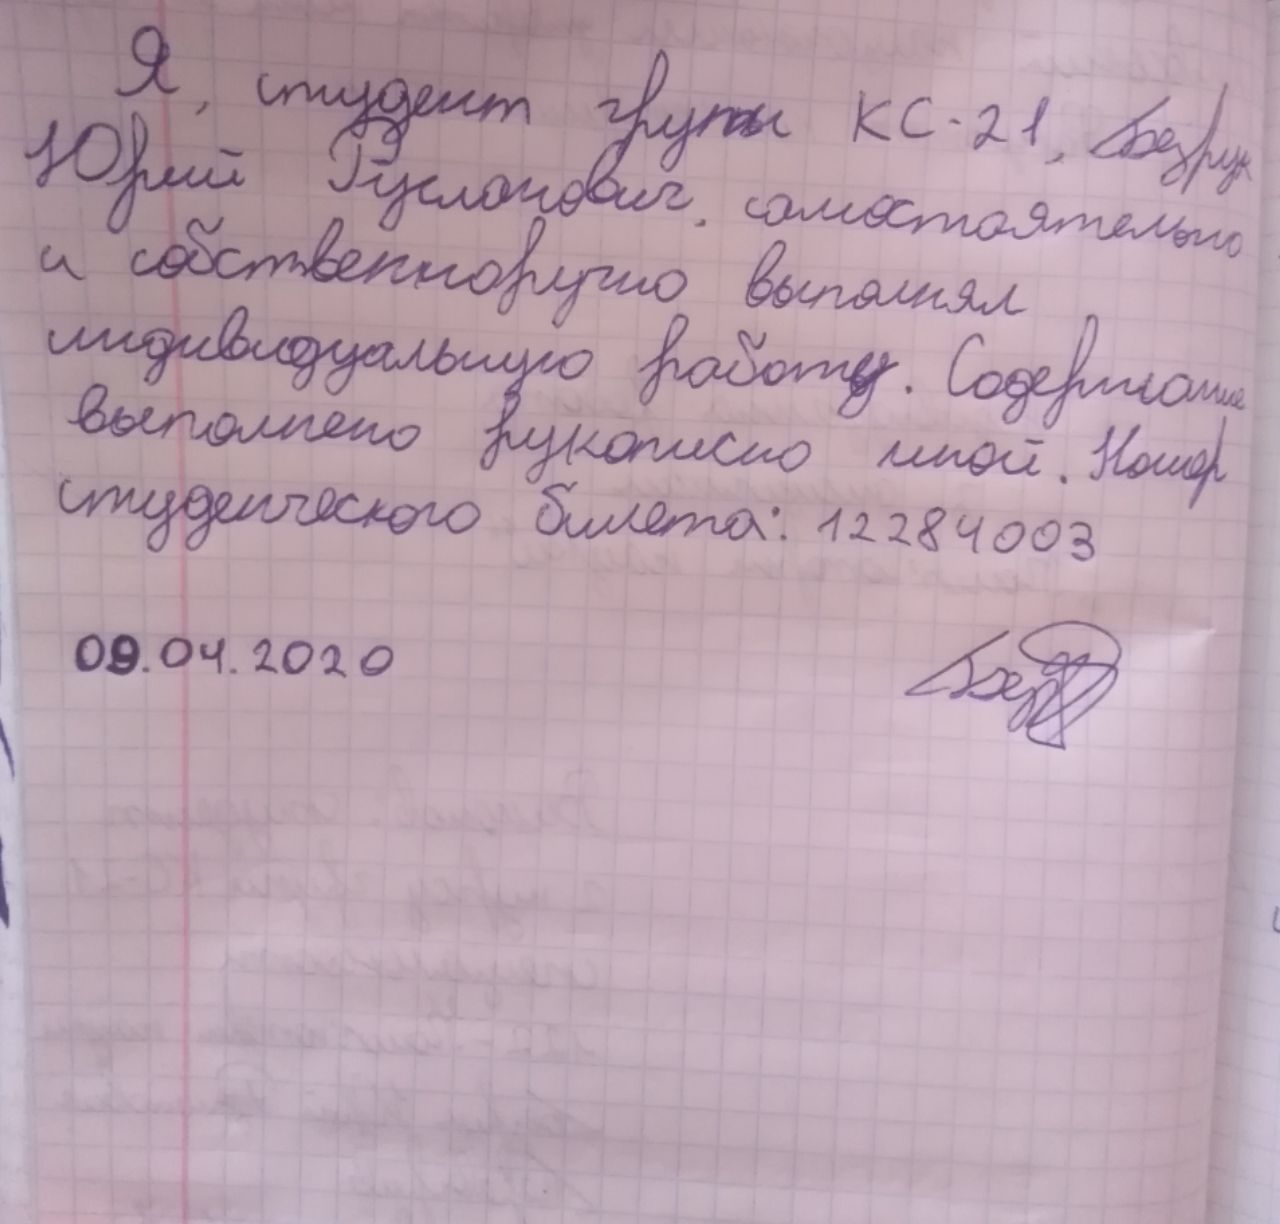 Я, студент групы КС-21, Безрук
Юрий Русланович, самостоятельно
и собственноручно выполнял
индивидуальную работу. Содержание
выполнено рукописно мной. Номер
студенческого билета: 12284003
09.04.2020